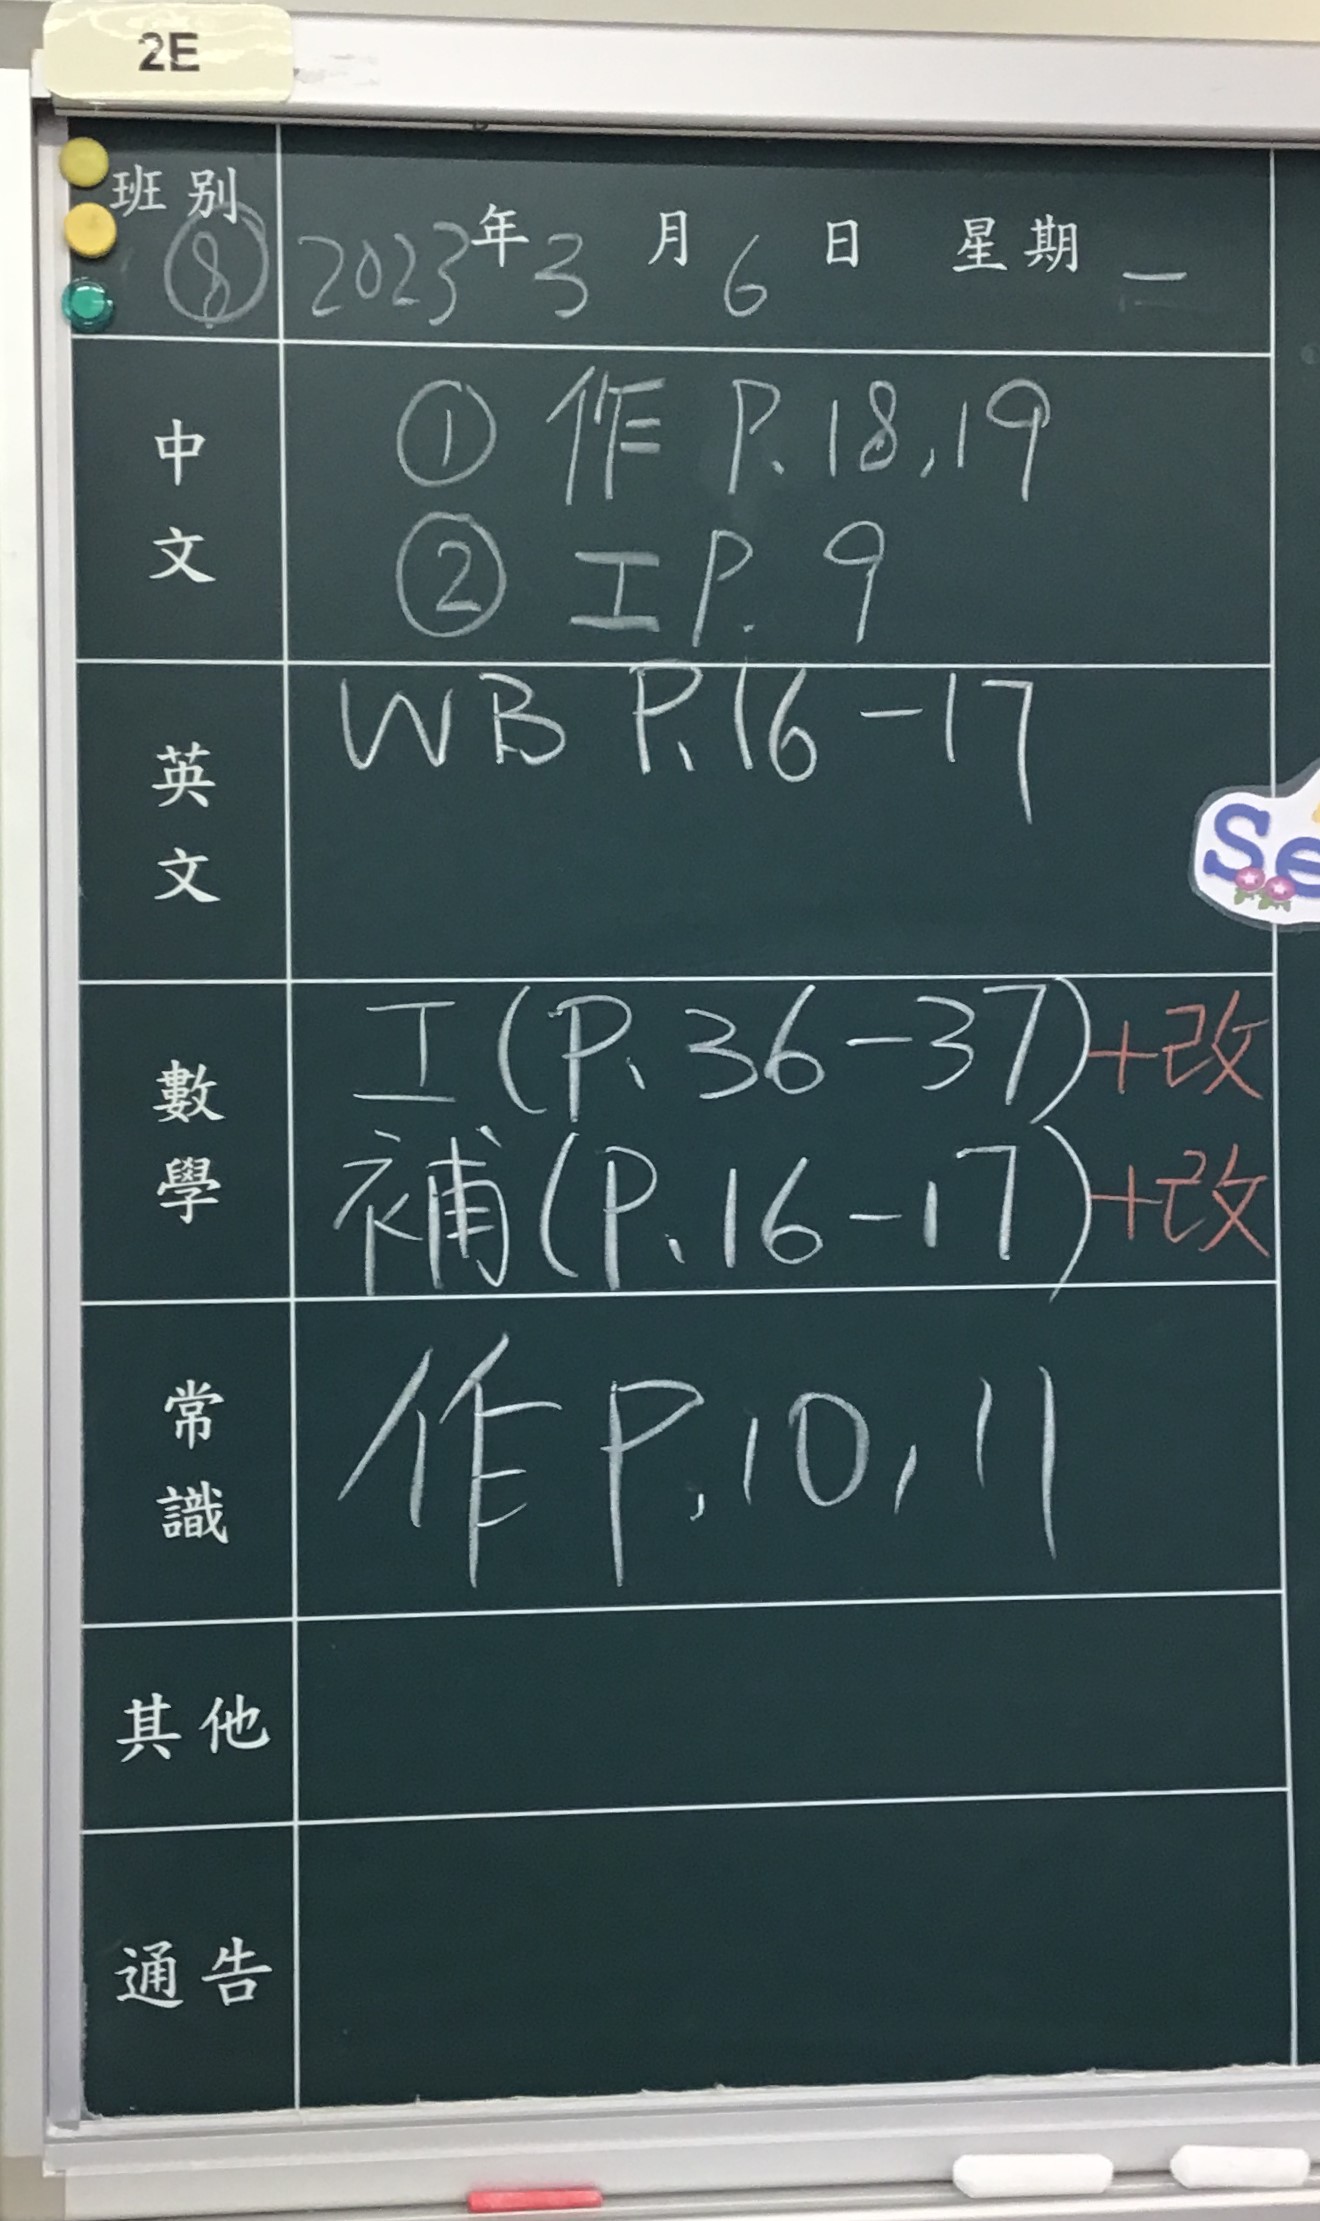 2E
班別
⑧
2023年3月6日 星期一
中文
① 作 P.18,19
② 工 P.9
英文
WB P.16-17
Se
數學
工(P.36-37)+改
補(P.16-17)+改
常識
作 P.10,11
其他
通告